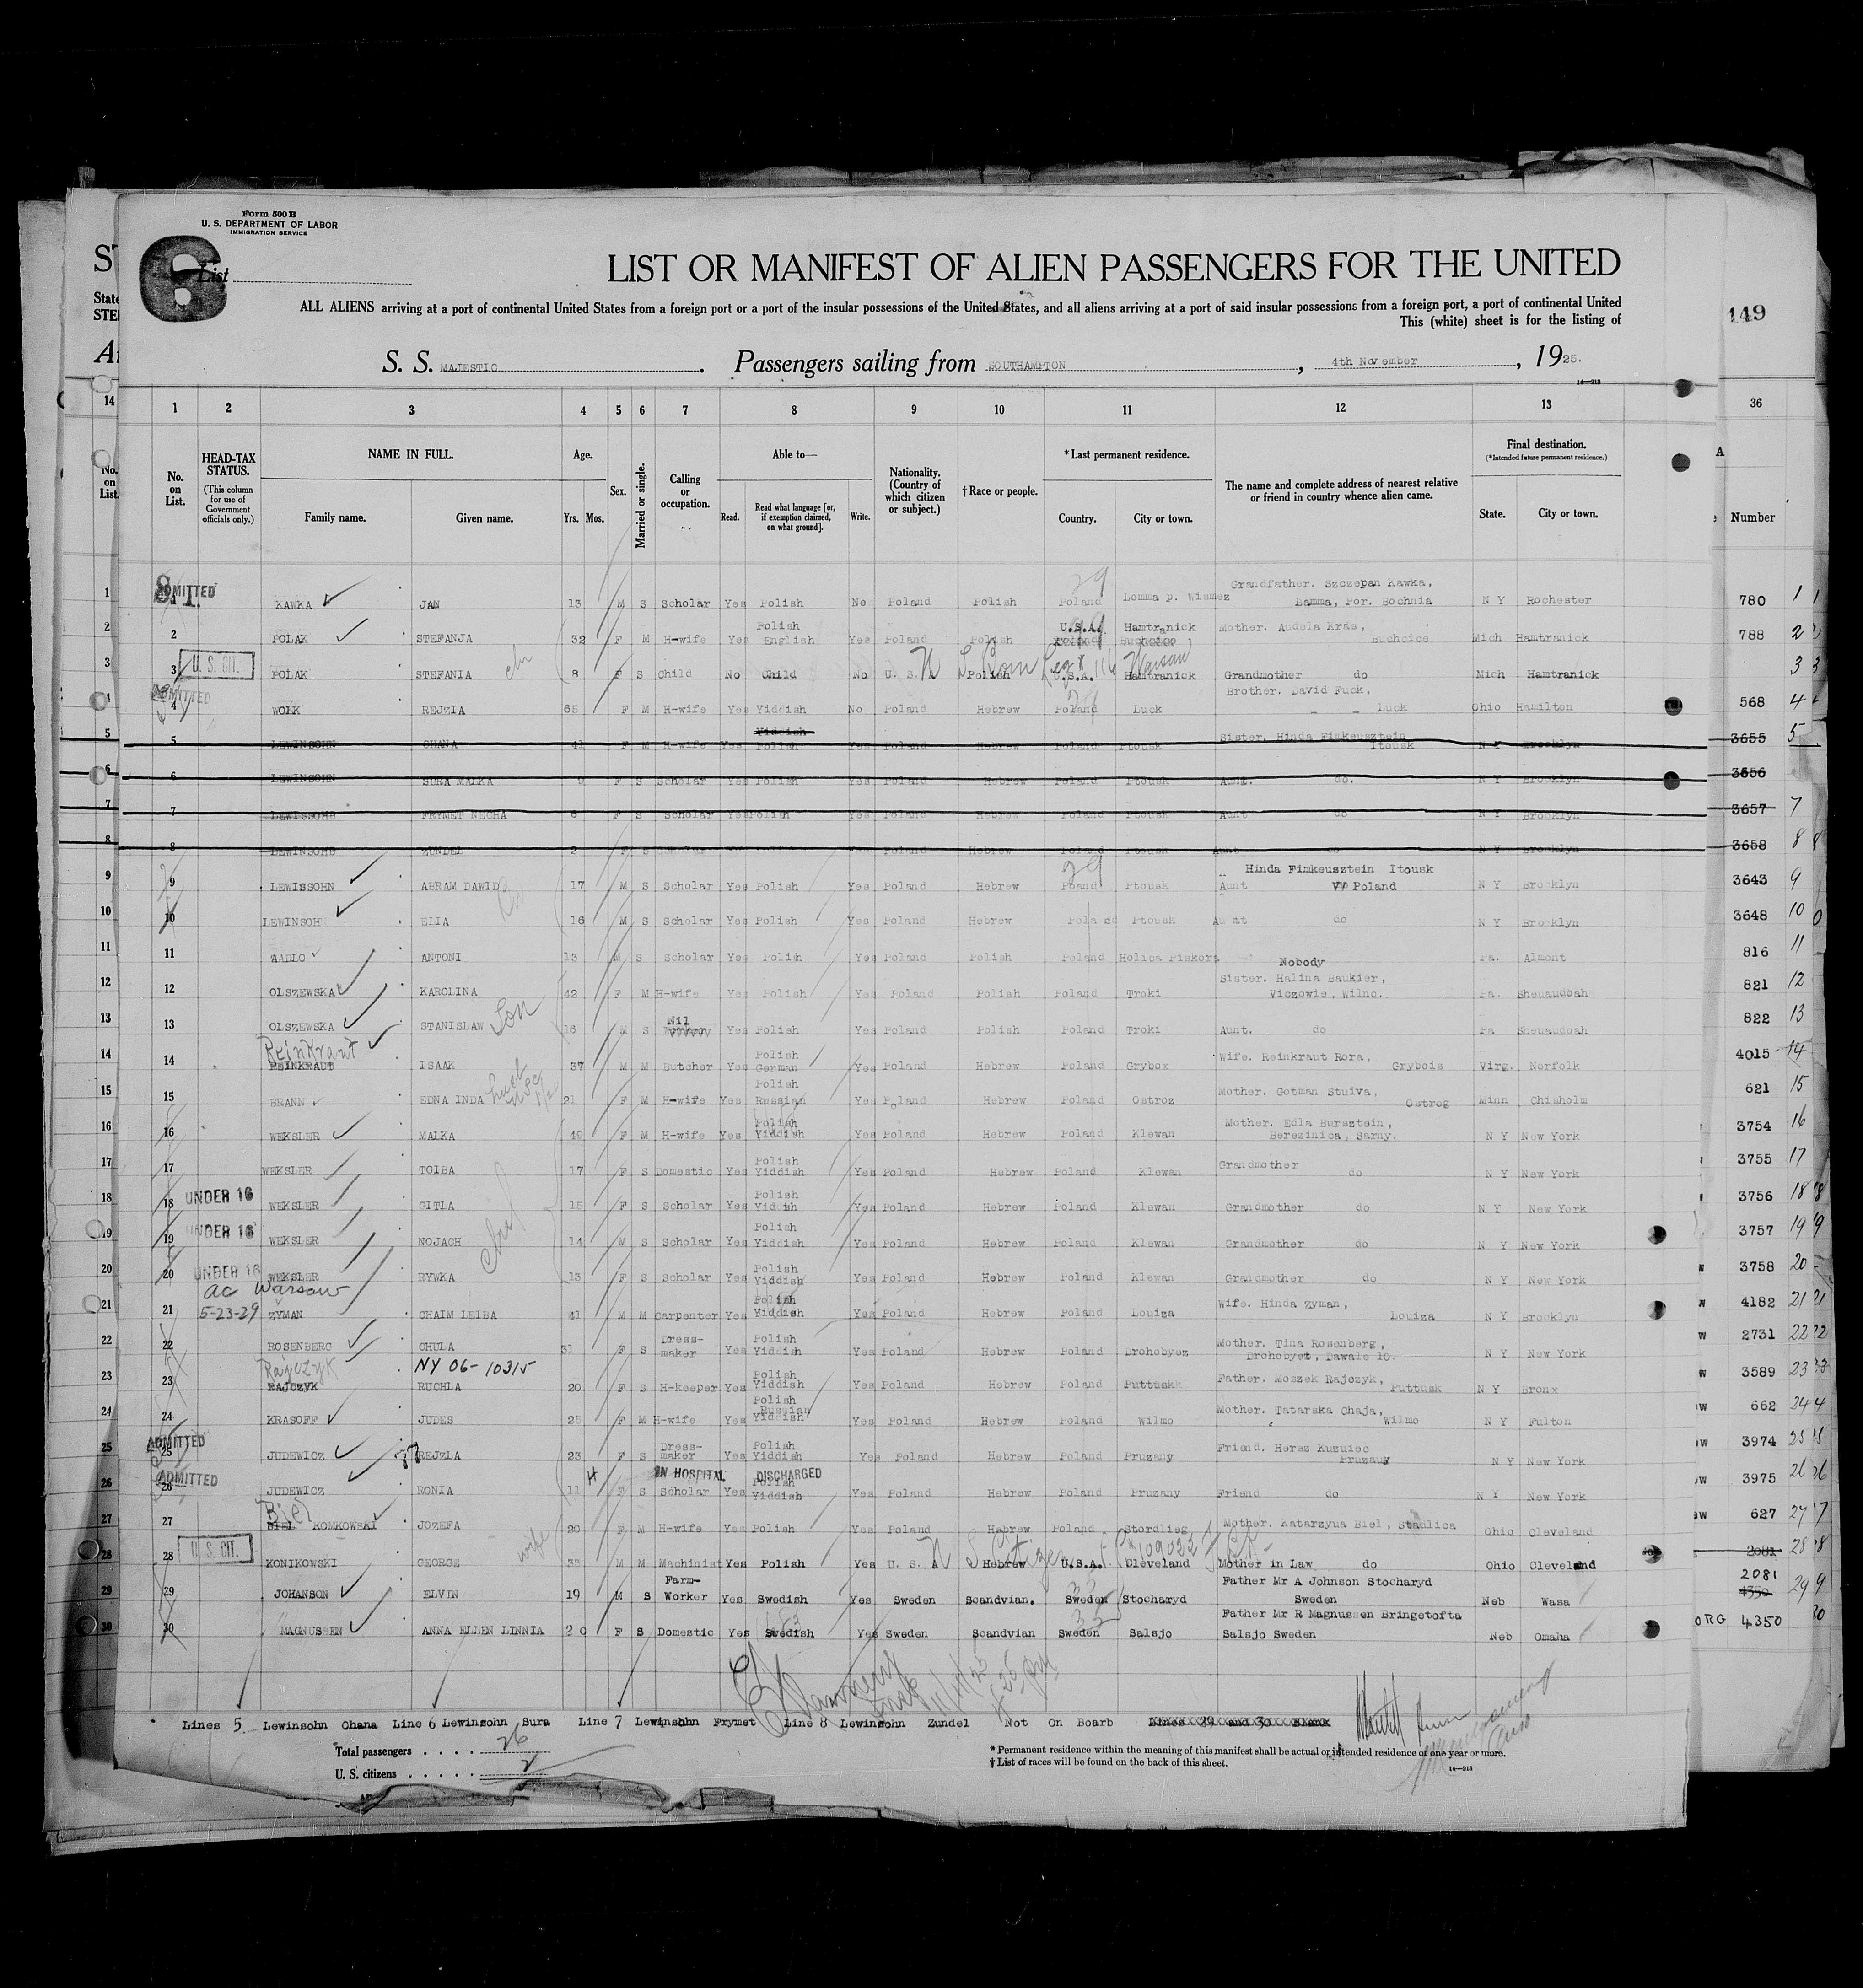 Form 500 B
U. S. DEPARTMENT OF LABOR
IMMIGRATION SERVICE
6
List
LIST OR MANIFEST OF ALIEN PASSENGERS FOR THE UNITED
ALL ALIENS arriving at a port of continental United States from a foreign port or a port of the insular possessions of the United States, and all aliens arriving at a port of said insular possessions from a foreign port, a port of continental United
This (white) sheet is for the listing of
149
S. S. MAJESTIC. Passengers sailing from SOUTHAMPTON, 4th November, 1925.
14—213
1 2 3 4 5 6 7 8 9 10 11 12 13 36
No. on List.
HEAD-TAX STATUS. (This column for use of Government officials only.)
NAME IN FULL.
Family name. Given name.
Age. Yrs. Mos.
Sex.
Married or single.
Calling or occupation.
Able to—
Read. Read what language [or, if exemption claimed, on what ground]. Write.
Nationality. (Country of which citizen or subject.)
† Race or people.
* Last permanent residence.
Country. City or town.
The name and complete address of nearest relative or friend in country whence alien came.
Final destination.
(*Intended future permanent residence.)
State. City or town.
Number
ADMITTED 29 Grandfather. Szczepan Kawka,
1 KAWKA JAN 13 M S Scholar Yes Polish No Poland Polish Poland Lomma p. Wismez Bamma, Por. Bochnia N Y Rochester 780 1
Polish U.S.A. Hamtranick
2 POLAK STEFANJA 32 F M H-wife Yes English Yes Poland Polish Mother. Audela Kras, Buchcice Mich Hamtranick 788 2
U. S. CIT.
3 POLAK STEFANIA 8 F S Child No Child No U. S. A Polish U.S.A. Hamtranick Grandmother do Mich Hamtranick 3
Warsaw
ADMITTED Brother. David Fuck,
4 WOLK REJZIA 65 F M H-wife Yes Yiddish No Poland Hebrew Poland Luck Luck Ohio Hamilton 568 4
Yiddish Sister. Hinda Fimkeusztein
5 LEWINSOHN CHANA 41 F M H-wife Yes Polish Yes Poland Hebrew Poland Ptousk Itousk N Y Brooklyn 3655 5
6 LEWINSOHN SURA MALKA 9 F S Scholar Yes Polish Yes Poland Hebrew Poland Ptousk Aunt. do. N Y Brooklyn 3656
7 LEWISSOHB FRYMET NECHA 6 F S Scholar Yes Polish Yes Poland Hebrew Poland Ptousk Aunt do N Y Brooklyn 3657 7
8 LEWINSOHB ZUNDEL 2 F S Poland Hebrew Poland Ptousk Aunt N Y Brooklyn 3658 8
29 Hinda Fimkeusztein Itousk
9 LEWISSOHN ABRAM DAWID 17 M S Scholar Yes Polish Yes Poland Hebrew Poland Ptousk Aunt Poland N Y Brooklyn 3643 9
10 LEWINSOHN ELIA 16 M S Scholar Yes Polish Yes Poland Hebrew Poland Ptousk Aunt do N Y Brooklyn 3648 10
11 WADLO ANTONI 13 M S Scholar Yes Polish Yes Poland Polish Poland Holica Piskora Nobody Pa. Almont 816 11
Sister. Halina Baukier,
12 OLSZEWSKA KAROLINA 42 F M H-wife Yes Polish Yes Poland Polish Poland Troki Viczowie, Wilno. Pa. Sheuaudoah 821 12
Son Nil
13 OLSZEWSKA STANISLAW 16 M S Yes Polish Yes Poland Polish Poland Troki Aunt. do Pa Sheuaudoah 822 13
Reinkraut Polish Wife. Reinkraut Rora,
14 REINKRAUT ISAAK 37 M M Butcher Yes German Yes Poland Hebrew Poland Grybox Grybois Virg. Norfolk 4015 14
Polish Mother. Gotman Stuiva,
15 BRANN EDNA INDA 21 F M H-wife Yes Russian Yes Poland Hebrew Poland Ostroz Ostrog Minn Chisholm 621 15
Polish Mother. Edla Bursztein,
16 WEKSLER MALKA 49 F M H-wife Yes Yiddish Yes Poland Hebrew Poland Klewan Berezinica, Sarny. N Y New York 3754 16
Polish Grandmother
17 WEKSLER TOIBA 17 F S Domestic Yes Yiddish Yes Poland Hebrew Poland Klewan do N Y New York 3755 17
UNDER 16 Polish
18 WEKSLER GITLA 15 F S Scholar Yes Yiddish Yes Poland Hebrew Poland Klewan Grandmother do N Y New York 3756 18
UNDER 16 Polish
19 WEKSLER NOJACH 14 M S Scholar Yes Yiddish Yes Poland Hebrew Poland Klewan Grandmother do N Y New York 3757 19
UNDER 16 Polish
20 WEKSLER RYWKA 13 F S Scholar Yes Yiddish Yes Poland Hebrew Poland Klewan Grandmother do N Y New York 3758 20
ac Warsaw 5-23-29 Polish Wife. Hinda Zyman,
21 ZYMAN CHAIM LEIBA 41 M M Carpenter Yes Yiddish Yes Poland Hebrew Poland Louiza Louiza N Y Brooklyn 4182 21
Dress- Polish Mother. Tina Rosenberg,
22 ROSENBERG CHULA 31 F S maker Yes Yiddish Yes Poland Hebrew Poland Drohobyez Drohobyet, Dawale 10. N Y New York 2731 22
Rajczyk NY 06-10315 Polish Father. Moszek Rajczyk,
23 RAJCZYK RUCHLA 20 F S H-keeper Yes Yiddish Yes Poland Hebrew Poland Puttusk Puttusk N Y Bronx 3589 23
Polish Russian Mother. Tatarska Chaja,
24 KRASOFF JUDES 25 F M H-wife Yes Yiddish Yes Poland Hebrew Poland Wilmo Wilmo N Y Fulton 662 24
ADMITTED Dress- Polish Friend. Hersz Kuzuiec
25 JUDEWICZ REJZLA 23 F S maker Yes Yiddish Yes Poland Hebrew Poland Pruzany Pruzany N Y New York 3974 25
ADMITTED IN HOSPITAL DISCHARGED Polish
26 JUDEWICZ RONIA 11 F S Scholar Yes Yiddish Yes Poland Hebrew Poland Pruzany Friend do N Y New York 3975 26
Biel
27 BIEL KOMKOWSKI JOZEFA 20 F M H-wife Yes Polish Yes Poland Hebrew Poland Stordlieg Mother. Katarzyua Biel, Staulica Ohio Cleveland 627 27
U. S. CIT. wife
28 KONIKOWSKI GEORGE 33 M M Machinist Yes Polish Yes U. S. A Hebrew U.S.A. Cleveland Mother in Law do Ohio Cleveland 2081 28
Farm- Father Mr A Johnson Stocharyd 2081
29 JOHANSON ELVIN 19 M S Worker Yes Swedish Yes Sweden Scandvian. Sweden Stocharyd Sweden Neb Wasa 4350 29
Father Mr R Magnussen Bringetofta
30 MAGNUSSEN ANNA ELLEN LINNIA 20 F S Domestic Yes Swedish Yes Sweden Scandvian Sweden Salsjo Salsjo Sweden Neb Omaha ORG 4350 30
Lines 5 Lewinsohn Ohana Line 6 Lewinsohn Sura Line 7 Lewinsohn Frymet Line 8 Lewinsohn Zundel Not On Boarb Lines 29 and 30 Blank
Total passengers . . . . 26
U. S. citizens . . . . . 2
* Permanent residence within the meaning of this manifest shall be actual or intended residence of one year or more.
† List of races will be found on the back of this sheet.
14—213